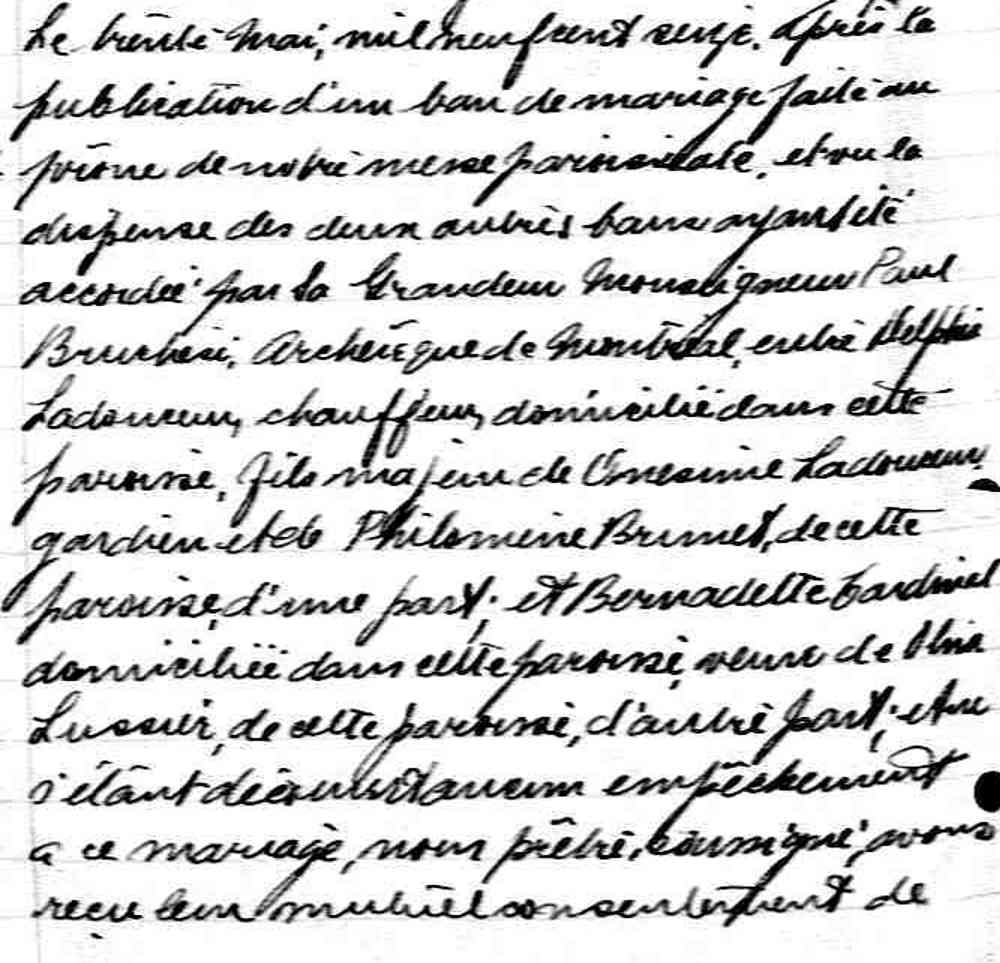 Le trente Mai, mil neuf cent seize, après la
publication d'un ban de mariage faite au
prône de notre messe paroissiale, et vu la
dispense des deux autres bans ayant été
accordée par Sa Grandeur Monseigneur Paul
Bruchési, Archevêque de Montréal, entre Delphis
Ladouceur, chauffeur, domicilié dans cette
paroisse, fils majeur de Onesime Ladouceur,
gardien et de Philomène Brunet, de cette
paroisse, d'une part; et Bernadette Cardinal
domiciliée dans cette paroisse, veuve de
Lussier, de cette paroisse, d'autre part; et ne
s'étant découvert aucun empêchement
a ce mariage, nous prêtre, soussigné, avons
reçu leur mutuel consentement de